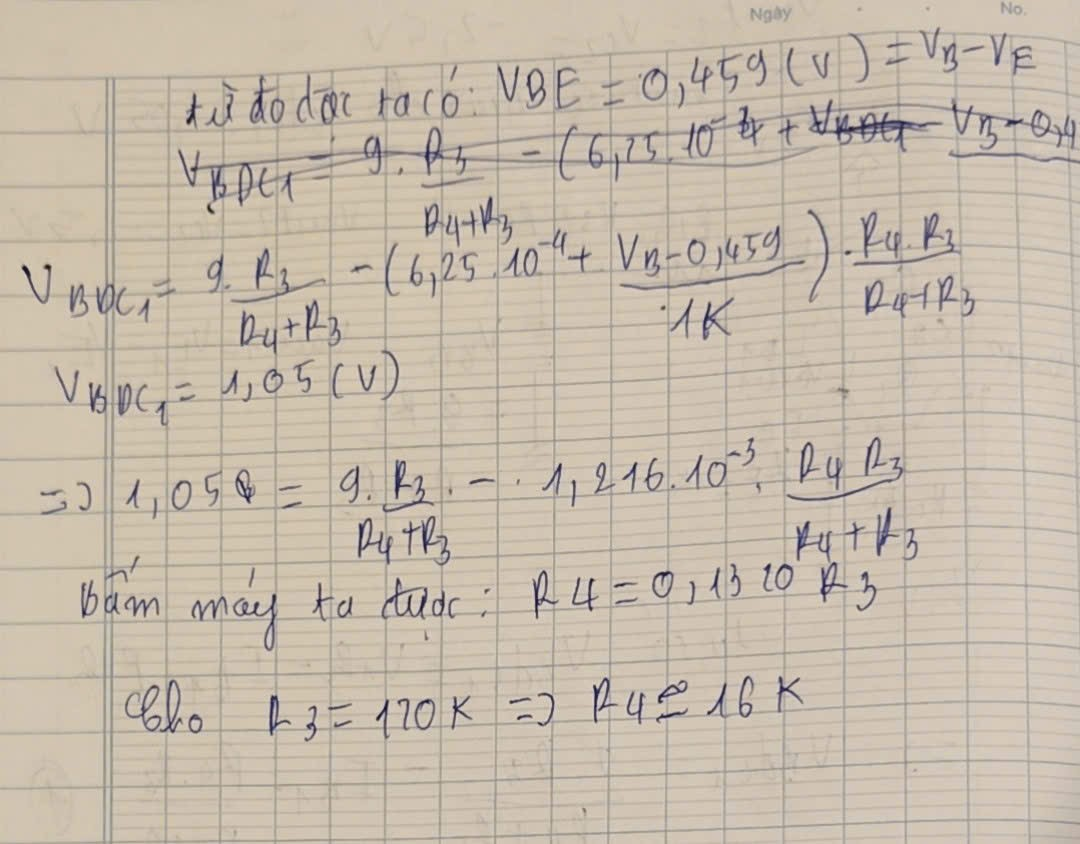 Ngày No.
từ đo đạc ta có: VBE = 0,459 (V) = VB - VE
VBDC1 = 9. R3/(R4+R3) - (6,25.10^-4 + VB - 0,4
VBDC1 = 9. R3/(R4+R3) - (6,25.10^-4 + (VB - 0,459)/1K) . (R4.R3)/(R4+R3)
VBDC1 = 1,05 (V)
=> 1,05 = 9. R3/(R4+R3) - 1,216.10^-3. (R4 R3)/(R4+R3)
Bấm máy ta được: R4 = 0,1320 R3
Cho R3 = 120K => R4 ≅ 16K